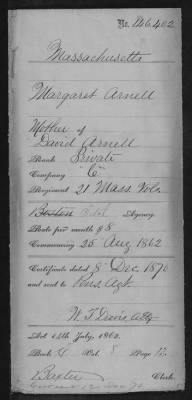 No. 146.402
Massachusetts
Margaret Arnell
Mother of
David Arnell
Rank Private
Company "C"
Regiment 21 Mass. Vols.
Boston Agency.
Rate per month $8
Commencing 25 Aug 1862
Certificate dated 8 Dec. 1870
and sent to Pens. Agt.
W. T. Davis Atty
Act 14th July, 1862.
Book Vol. Page
Baxter Clerk.